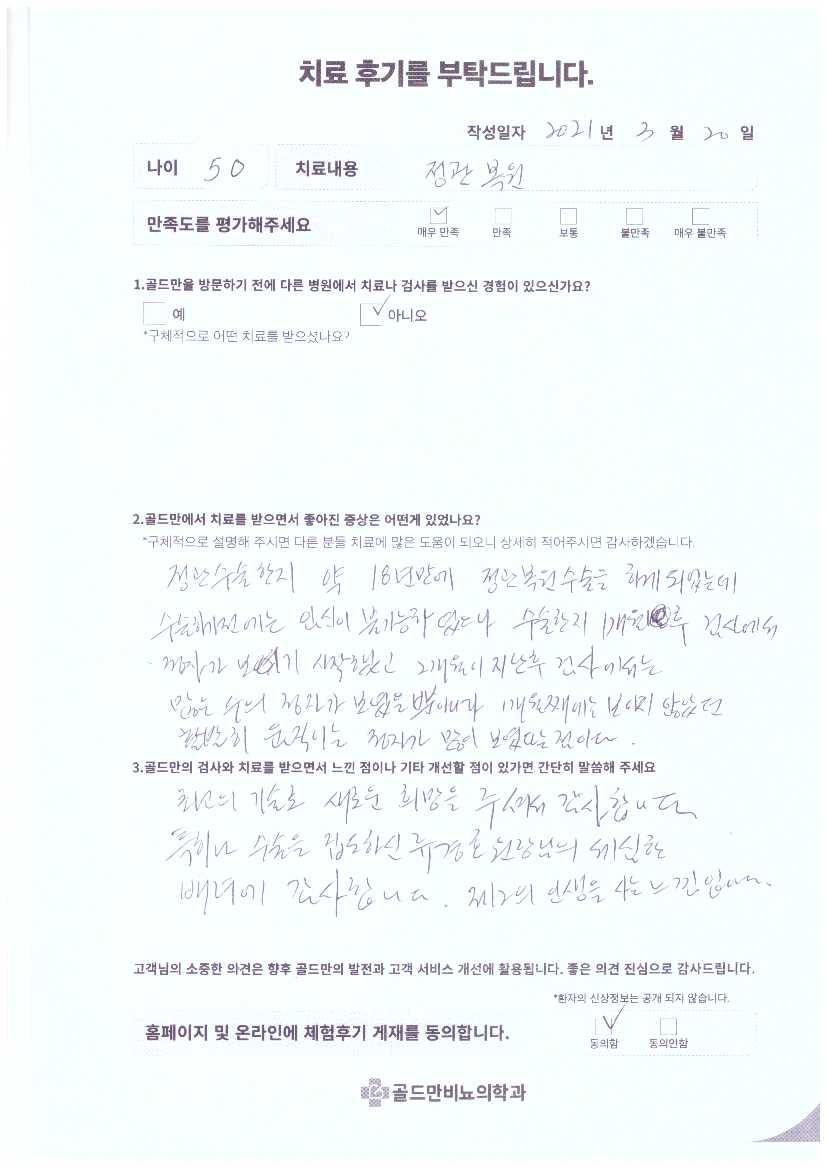 치료 후기를 부탁드립니다.
작성일자 2021 년 3 월 20 일
나이 50 치료내용 정관 복원
만족도를 평가해주세요 매우 만족 만족 보통 불만족 매우 불만족
1.골드만을 방문하기 전에 다른 병원에서 치료나 검사를 받으신 경험이 있으신가요?
예 아니오
*구체적으로 어떤 치료를 받으셨나요?
2.골드만에서 치료를 받으면서 좋아진 증상은 어떤게 있었나요?
*구체적으로 설명해 주시면 다른 분들 치료에 많은 도움이 되오니 상세히 적어주시면 감사하겠습니다.
정관수술한지 약 18년만에 정관복원수술을 하게 되었는데
수술하기전에는 임신이 불가능하였으나 수술한지 1개월 후 검사에서
정자가 보이기 시작하였고 2개월이 지난후 검사에서는
많은 수의 정자가 보였을뿐아니라 1개월째에는 보이지 않았던
활발히 움직이는 정자가 많이 보였다는 점이다.
3.골드만의 검사와 치료를 받으면서 느낀 점이나 기타 개선할 점이 있가면 간단히 말씀해 주세요
최고의 기술로 새로운 희망을 주셔서 감사합니다
특히나 수술을 집도하신 류경호 원장님의 세심한
배려에 감사합니다. 제2의 인생을 사는 느낌입니다.
고객님의 소중한 의견은 향후 골드만의 발전과 고객 서비스 개선에 활용됩니다. 좋은 의견 진심으로 감사드립니다.
*환자의 신상정보는 공개 되지 않습니다.
홈페이지 및 온라인에 체험후기 게재를 동의합니다. 동의함 동의안함
골드만비뇨의학과